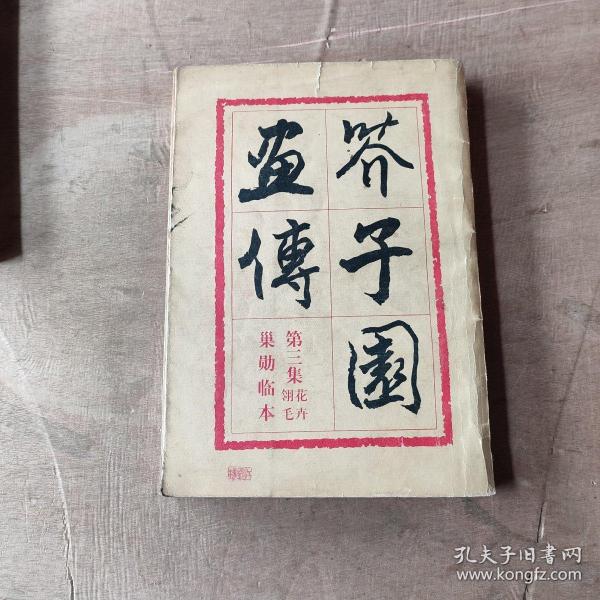 芥子園
畫傳
第三集 花卉 翎毛
巢勋临本
孔夫子旧書网
www.kongfz.com